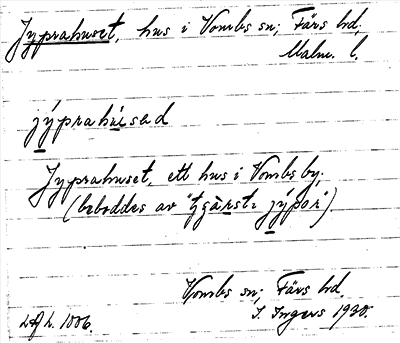 Jyprahuset, hus i Vombs sn, Färs hd,
Malm. l.
jýprahúsed
Jyprahuset, ett hus i Vombs by,
(beboddes av "tgàrsti jýpor").
Vombs sn, Färs hd.
I. Ingers 1930.
1006.